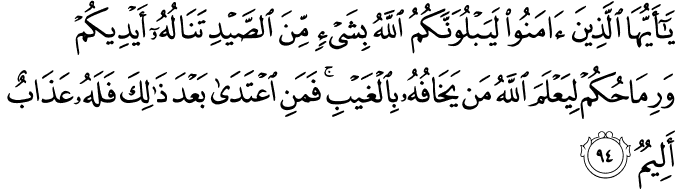 يَـٰٓأَيُّهَا ٱلَّذِينَ ءَامَنُوا۟ لَيَبْلُوَنَّكُمُ ٱللَّهُ بِشَىْءٍ مِّنَ ٱلصَّيْدِ تَنَالُهُۥٓ أَيْدِيكُمْ
وَرِمَاحُكُمْ لِيَعْلَمَ ٱللَّهُ مَن يَخَافُهُۥ بِٱلْغَيْبِ ۚ فَمَنِ ٱعْتَدَىٰ بَعْدَ ذَٰلِكَ فَلَهُۥ عَذَابٌ
أَلِيمٌ ٩٤